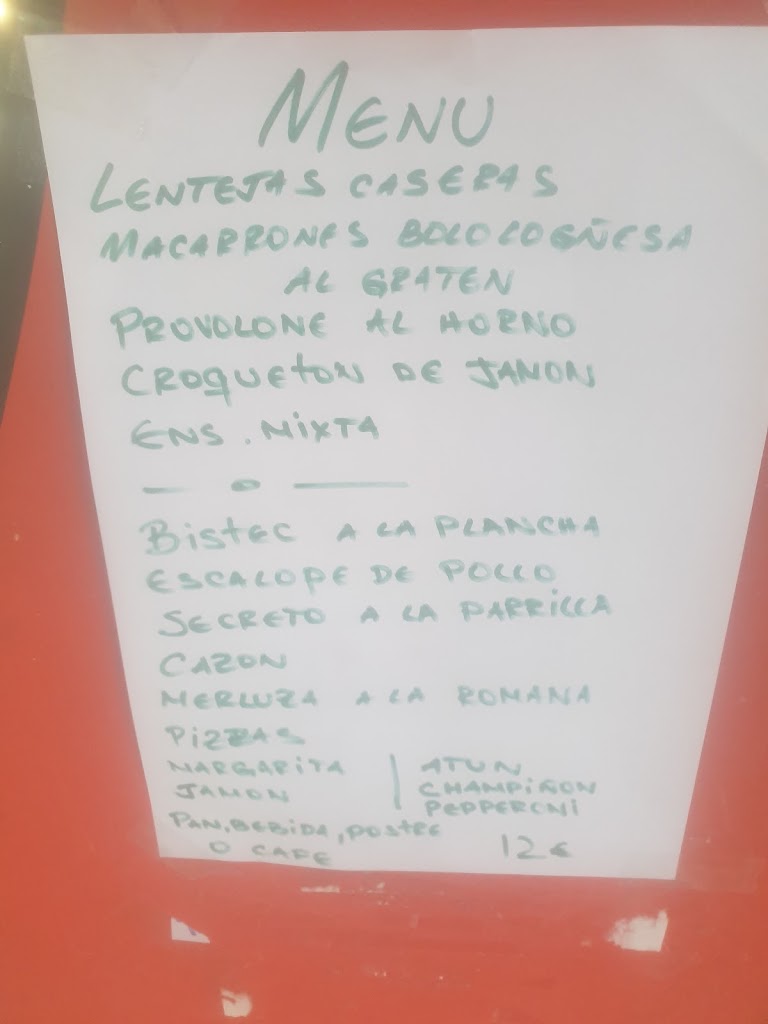 MENU
LENTEJAS CASERAS
MACARRONES BOLOLOGÑESA
AL GRATEN
PROVOLONE AL HORNO
CROQUETON DE JAMON
ENS. MIXTA
— o —
BISTEC A LA PLANCHA
ESCALOPE DE POLLO
SECRETO A LA PARRILLA
CAZON
MERLUZA A LA ROMANA
PIZZAS
MARGARITA | ATUN
JAMON | CHAMPIÑON
PEPPERONI
PAN, BEBIDA, POSTRE
O CAFE 12€